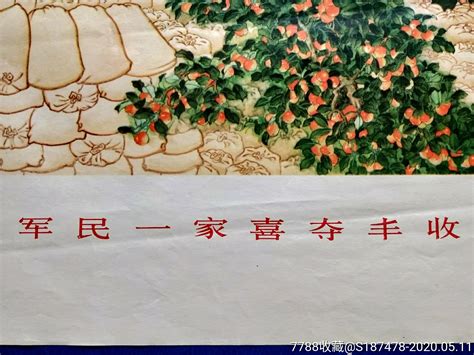 军民一家喜夺丰收
7788收藏@S187478-2020.05.11